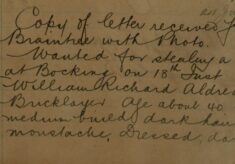 Copy of letter received f
Braintree with Photo.
Wanted for stealing a
at Bocking on 18th Inst
William Richard Aldre
Bricklayer Age about 40
medium build, dark hair
moustache, Dressed, da